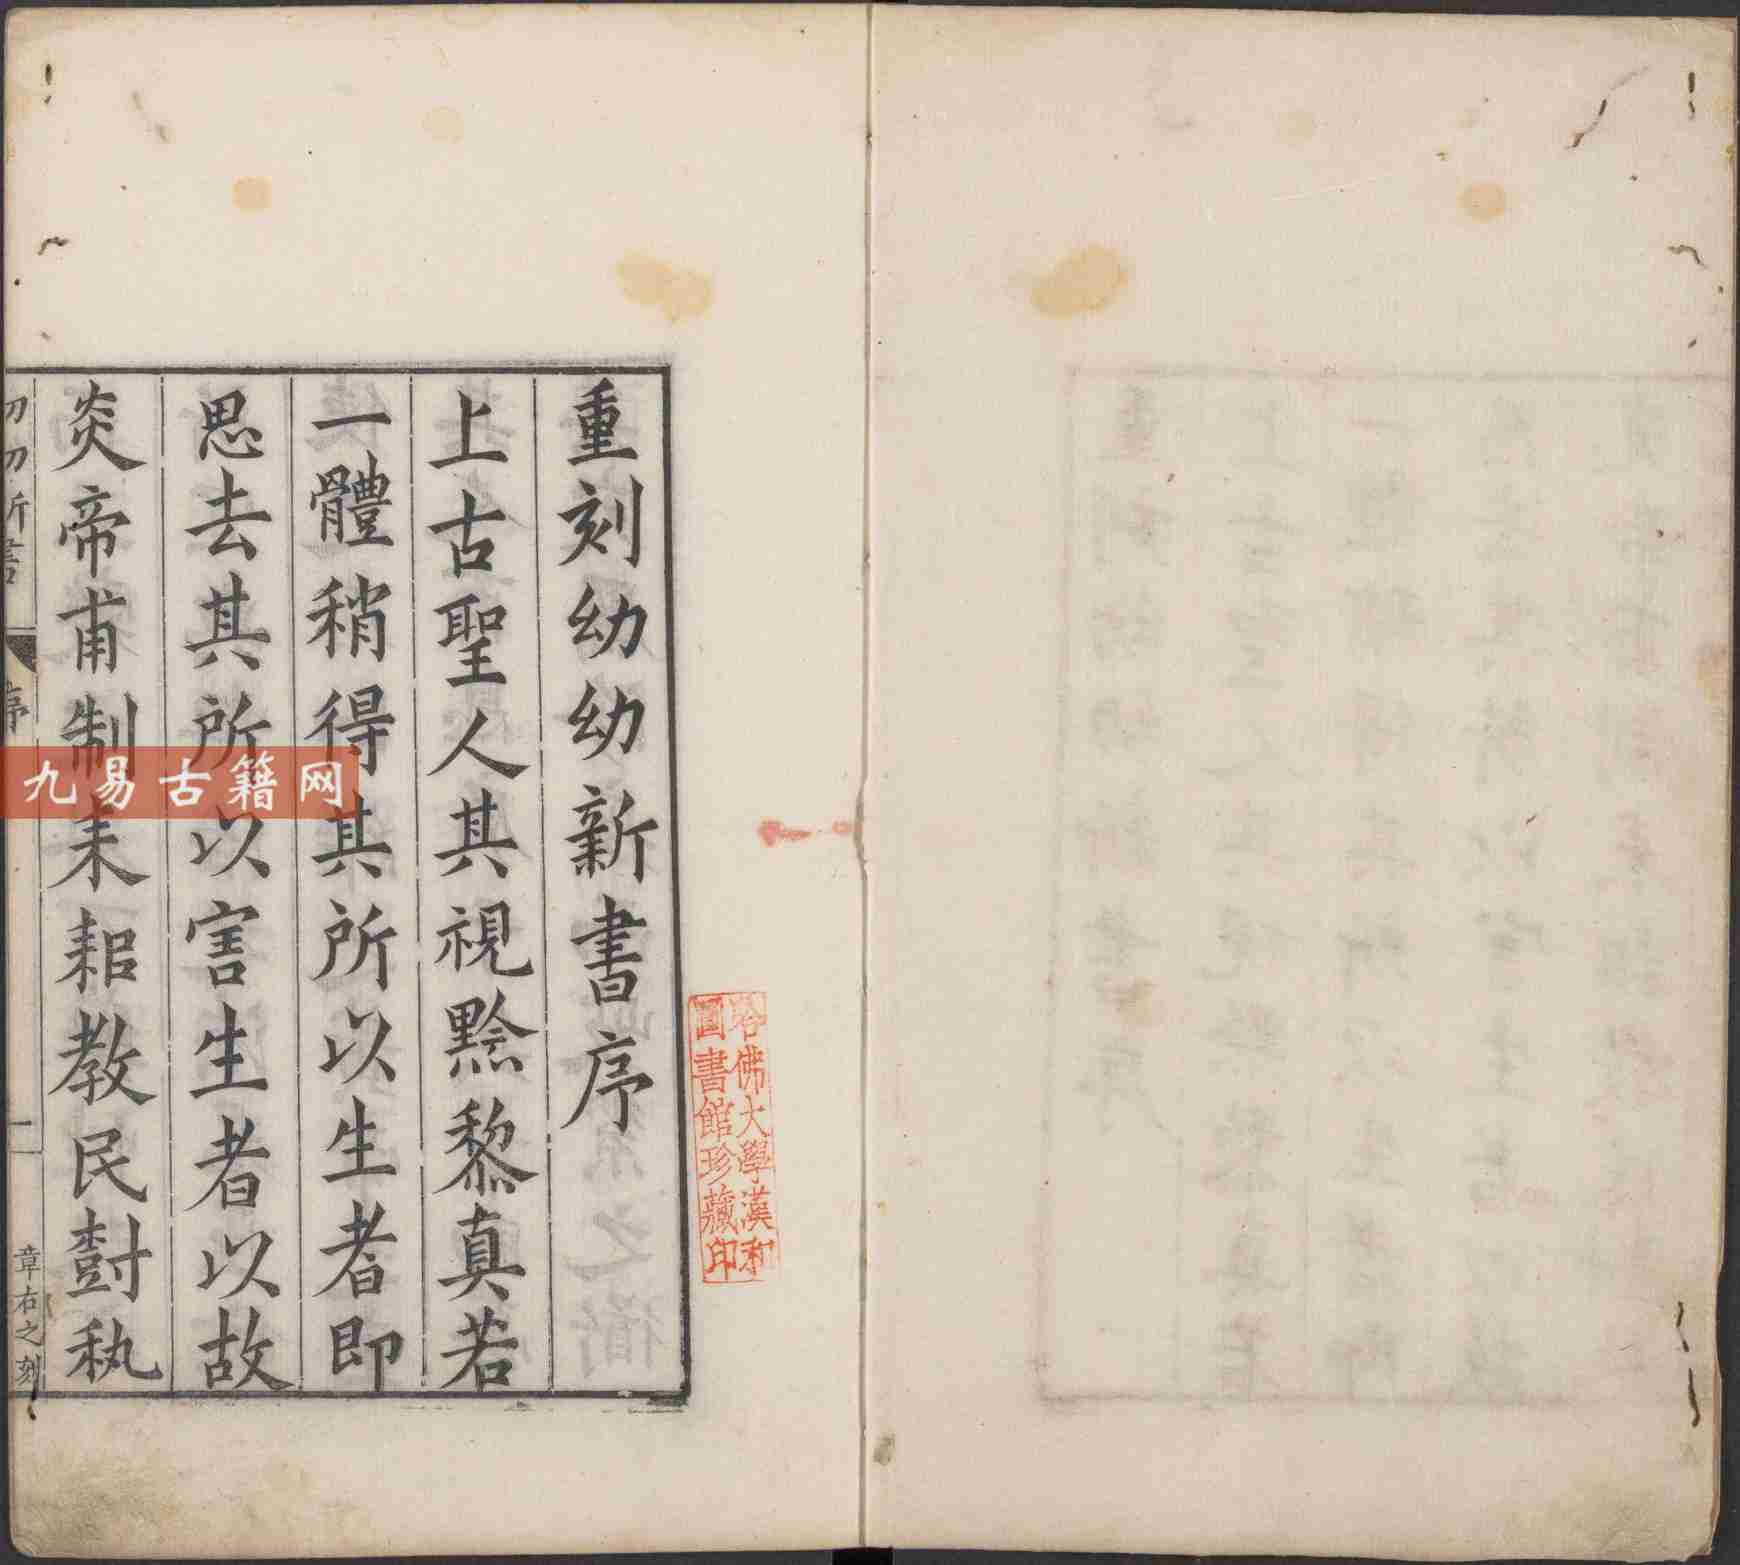 重刻幼幼新書序
上古聖人其視黔黎真若
一體稍得其所以生者即
思去其所以害生者以故
炎帝甫制耒耜教民尌秇
序
一
章右之刻
哈佛大學漢和
圖書館珍藏印
九易古籍网